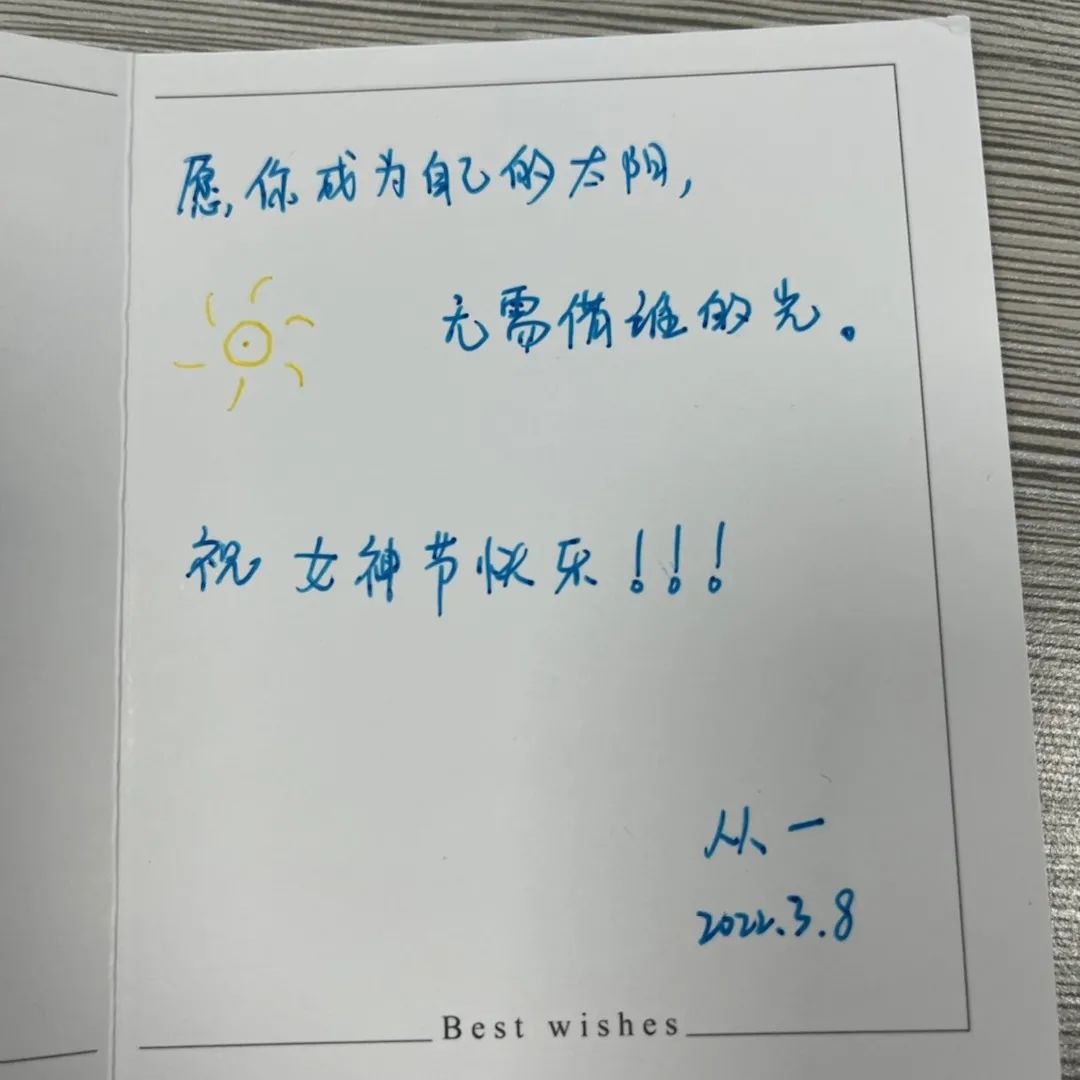 愿你成为自己的太阳,
无需借谁的光。
祝女神节快乐!!!
从一
2022.3.8
Best wishes